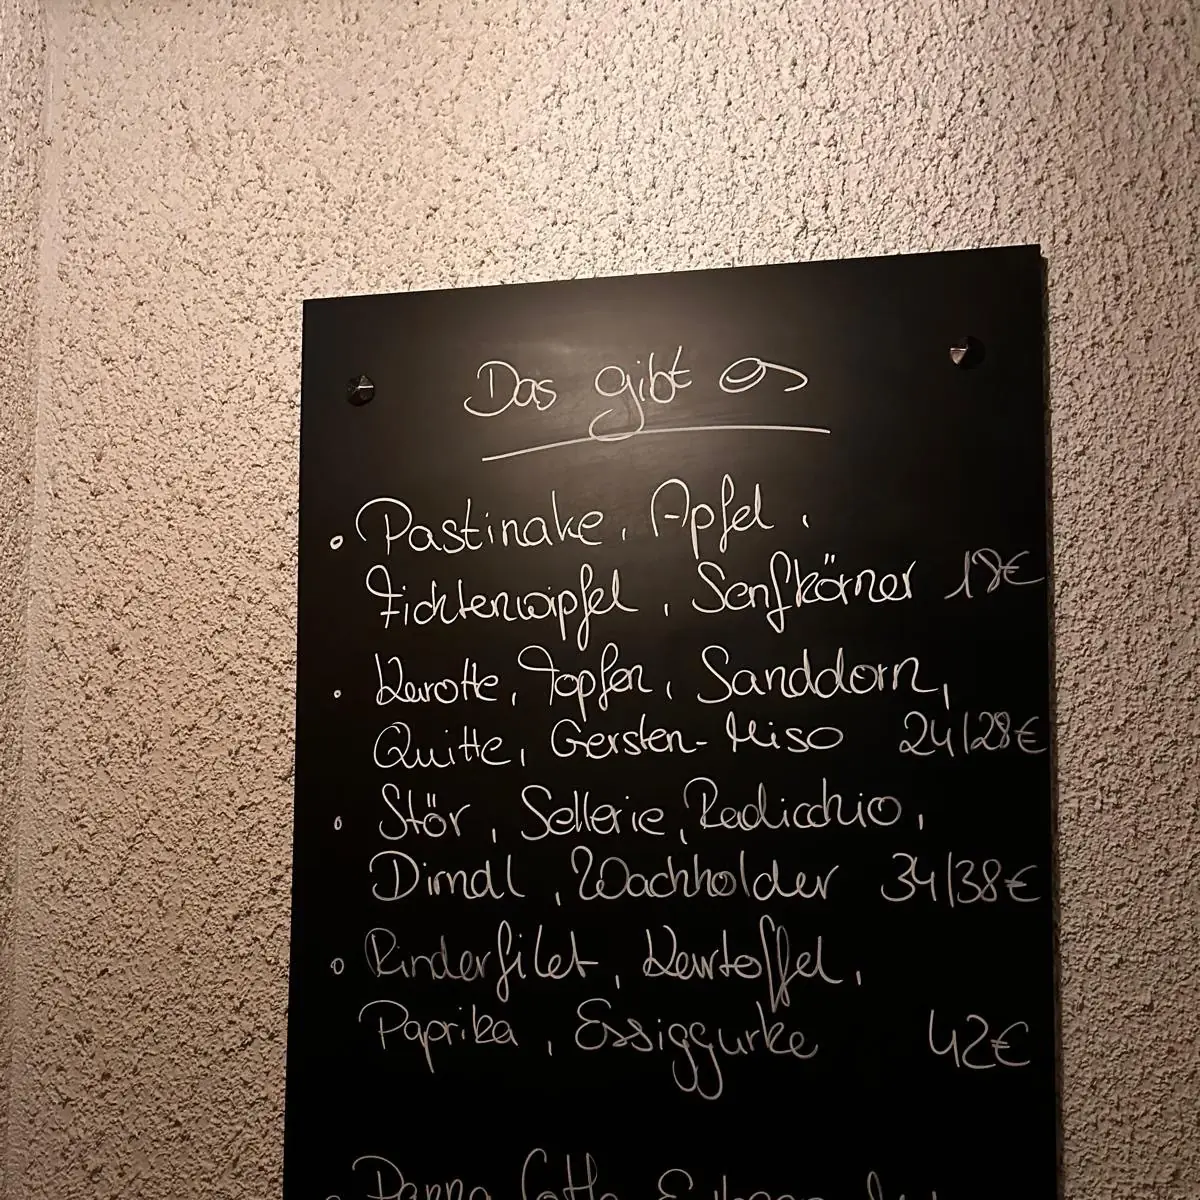 Das gibt es
Pastinake, Apfel,
Fichtenwipfel, Senfkörner 18€
Karotte, Topfen, Sanddorn,
Quitte, Gersten-Miso 24/28€
Stör, Sellerie, Radicchio,
Dirndl, Wachholder 34/38€
Rinderfilet, Kartoffel,
Paprika, Essiggurke 42€
Panna Cotta